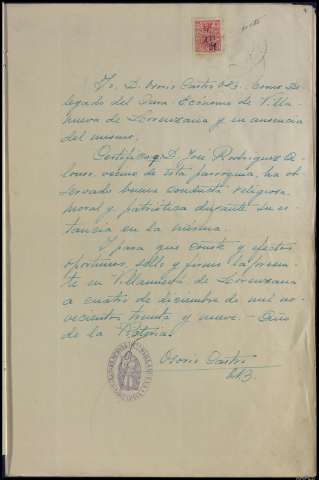 Yo, D. Osorio Castro Pbº. como De-
legado del Cura Ecónomo de Villa-
nueva de Lorenzana y en ausencia
del mismo.
Certifico: q D. José Rodriguez A-
lonso, vecino de esta parroquia, ha ob-
servado buena conducta religiosa
moral y patriótica durante su es-
tancia en la misma.
Y para que conste y efectos
oportunos, sello y firmo la presen-
te en Villanueva de Lorenzana
a cuatro de diciembre de mil no-
vecientos treinta y nueve - Año
de la Victoria.
Osorio Castro